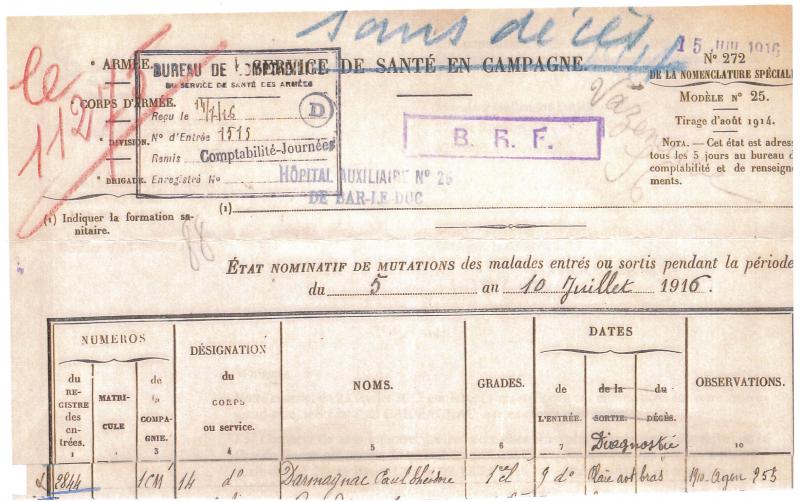 sans décès
le
11275
15 JUIL 1916
* ARMÉE.
BUREAU DE COMPTABILITÉ
SERVICE DE SANTÉ EN CAMPAGNE.
N° 272
DU SERVICE DE SANTÉ DES ARMÉES
DE LA NOMENCLATURE SPÉCIALE
* CORPS D'ARMÉE.
Reçu le 14/7/16
D
MODÈLE N° 25.
N° d'Entrée 1515
B. R. F.
Tirage d'août 1914.
* DIVISION.
Remis Comptabilité-Journées
NOTA. — Cet état est adres
tous les 5 jours au bureau d
comptabilité et de renseigne
ments.
* BRIGADE.
Enregistré N°
HÔPITAL AUXILIAIRE N° 26
DE BAR-LE-DUC
(1)
(1) Indiquer la formation sa-
nitaire.
88
ÉTAT NOMINATIF DE MUTATIONS des malades entrés ou sortis pendant la période
du 5 au 10 Juillet 1916.
NUMÉROS
DÉSIGNATION
du
CORPS
ou service.
NOMS.
GRADES.
DATES
OBSERVATIONS.
du
RE-
GISTRE
des
en-
trées.
MATRI-
CULE
de
la
COMPA-
GNIE.
de
L'ENTRÉE.
de la
SORTIE.
du
DÉCÈS.
Diagnostic
1 2 3 4 5 6 7 10
2844 1 CM 14 d° Darmagnac Paul 1e cl 9 d° Plaie bras 1910. Agen 255